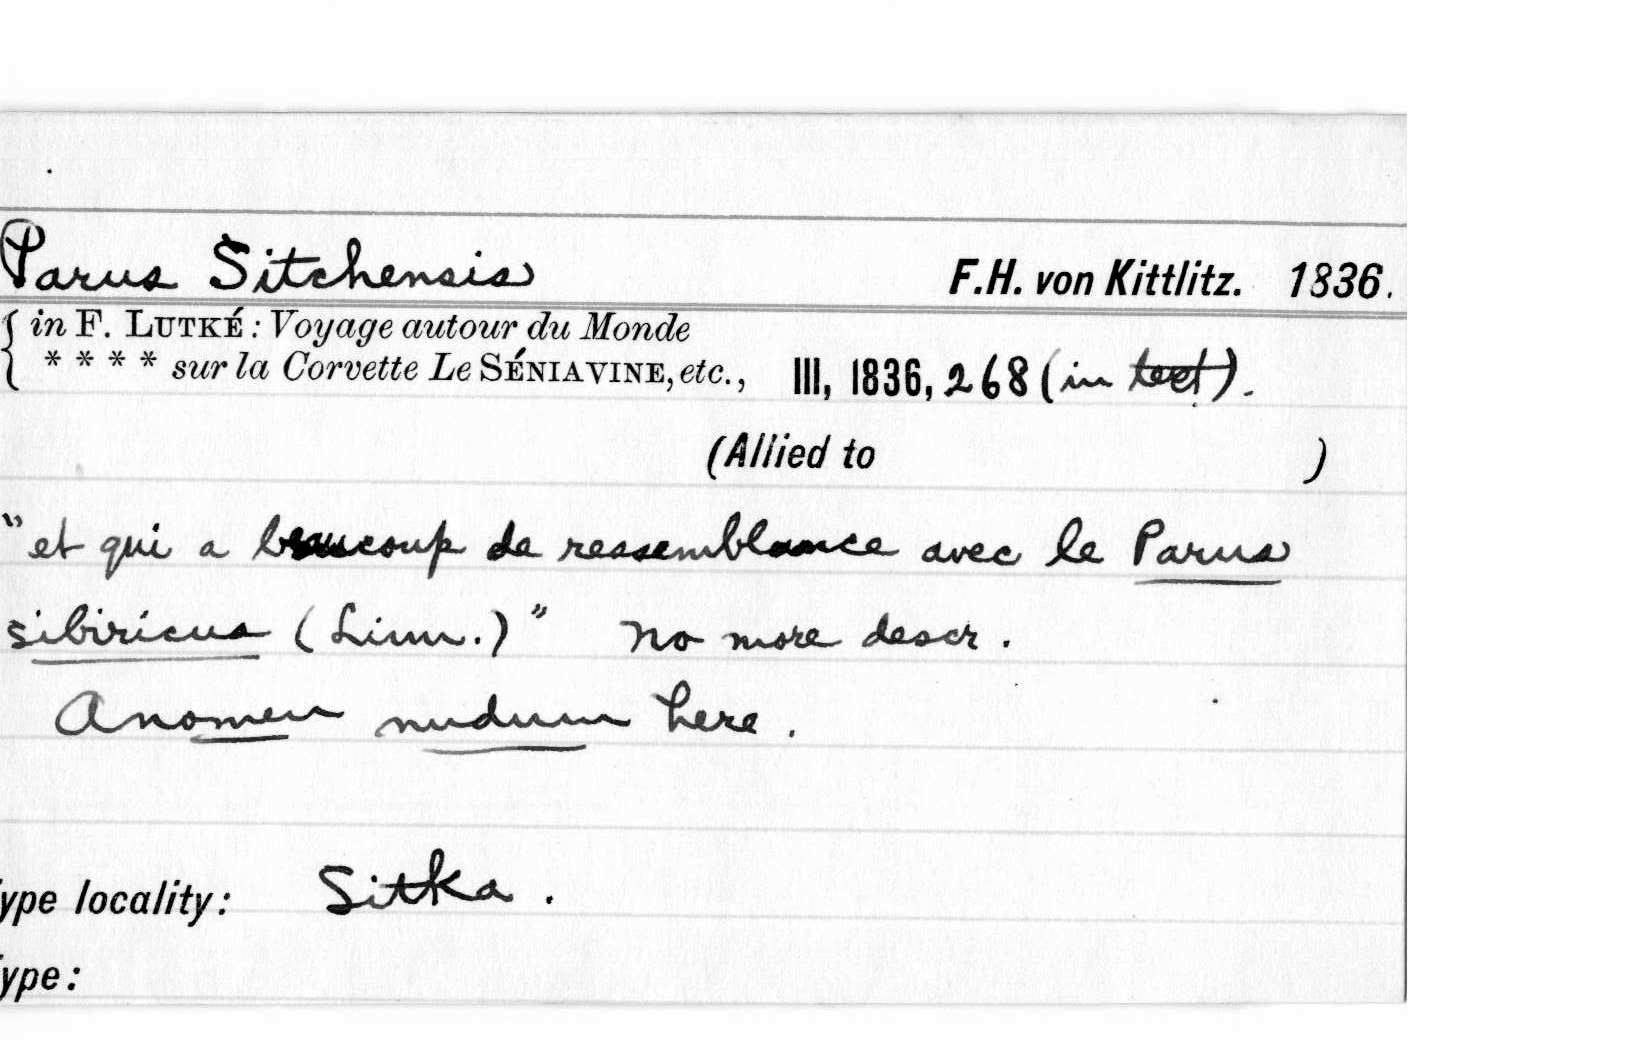 Parus Sitchensis F.H. von Kittlitz. 1836.
{ in F. LUTKÉ: Voyage autour du Monde
* * * * sur la Corvette Le SÉNIAVINE, etc., III, 1836, 268 (in text).
(Allied to )
"et qui a beaucoup de ressemblance avec le Parus
sibiricus (Linn.)" No more descr.
A nomen nudum here.
ype locality: Sitka.
ype: